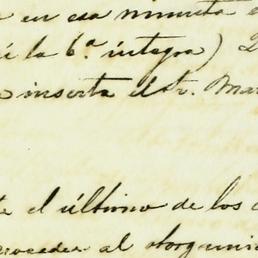 en esa minuta
la 6.ª integra)
inserta el Sr. Mar
te el último de los
proceder al otorgami